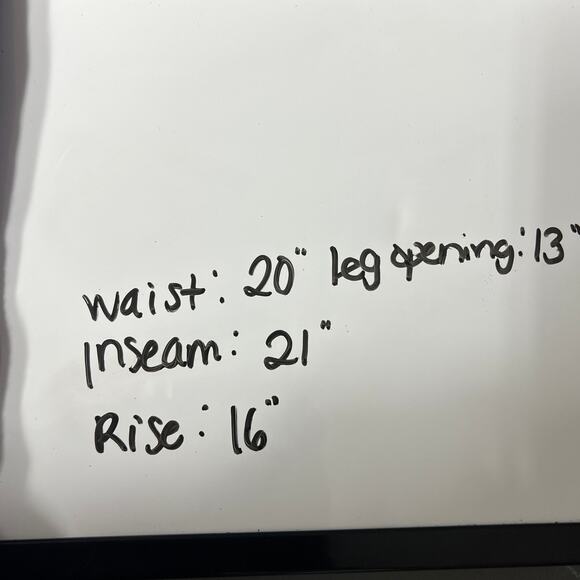 waist: 20" leg opening: 13"
Inseam: 21"
Rise: 16"